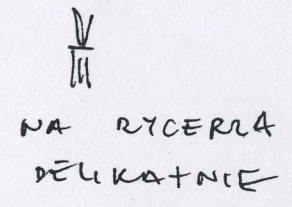 NA RYCERZA
DELIKATNIE